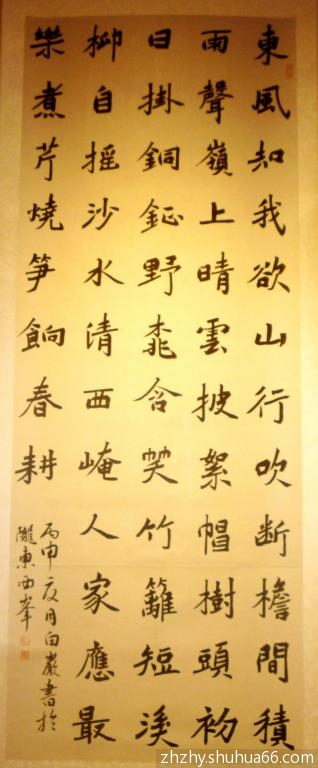 東風知我欲山行吹断檐間積
雨聲嶺上晴雲披絮帽樹頭初
日掛銅鉦野桃含笑竹籬短溪
柳自摇沙水清西崦人家應最
樂煮芹燒笋餉春耕
丙申夏月白巖書於
隴東西峯
zhzhy.shuhua66.com